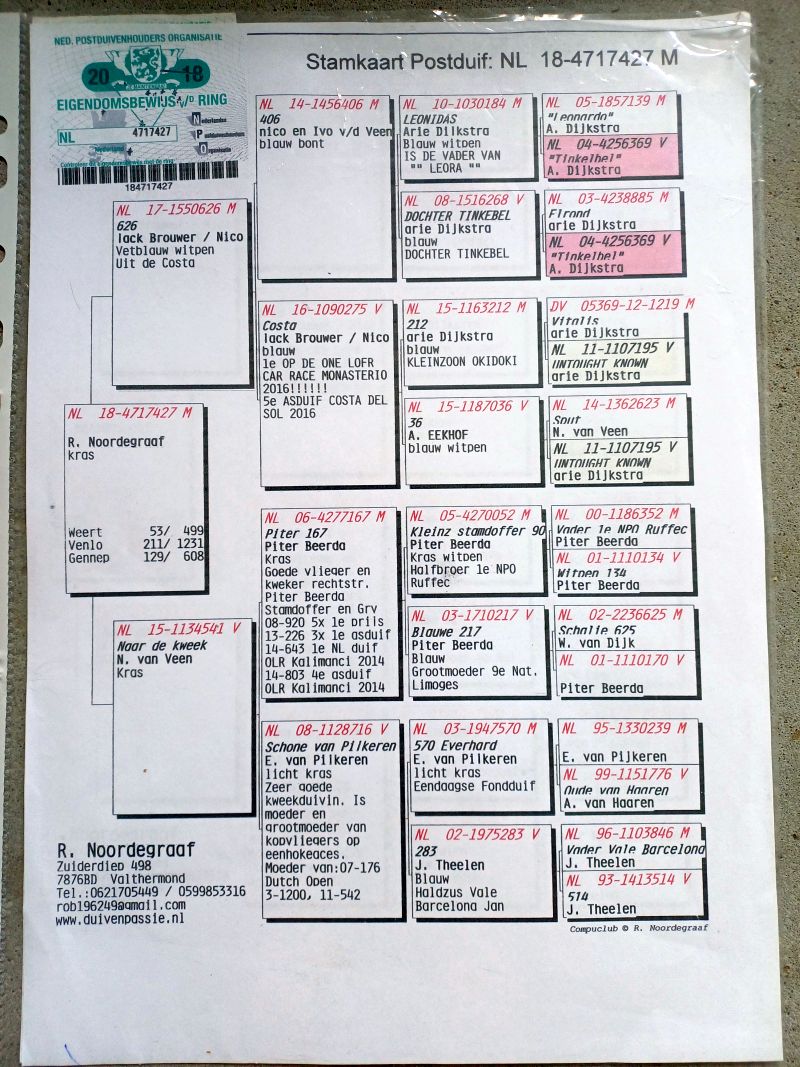 NED. POSTDUIVENHOUDERS ORGANISATIE
2018
JE MAINTIENDRAI
EIGENDOMSBEWIJS v/d RING
NL 4717427
Nederlandse
Postduivenhouders
Organisatie
Controleer dit Eigendomsbewijs met de ring
184717427
Stamkaart Postduif: NL 18-4717427 M
NL 18-4717427 M
R. Noordegraaf
kras
Weert 53/ 499
Venlo 211/ 1231
Gennep 129/ 608
NL 17-1550626 M
626
Jack Brouwer / Nico
Vetblauw witpen
Uit de Costa
NL 15-1134541 V
Naar de kweek
N. van Veen
Kras
NL 14-1456406 M
406
nico en Ivo v/d Veen
blauw bont
NL 16-1090275 V
Costa
Jack Brouwer / Nico
blauw
1e OP DE ONE LOFR
CAR RACE MONASTERIO
2016!!!!!!
5e ASDUIF COSTA DEL
SOL 2016
NL 06-4277167 M
Piter 167
Piter Beerda
Kras
Goede vlieger en
kweker rechtstr.
Piter Beerda
Stamdoffer en Grv
08-920 5x 1e prijs
13-226 3x 1e asduif
14-643 1e NL duif
OLR Kalimanci 2014
14-803 4e asduif
OLR Kalimanci 2014
NL 08-1128716 V
Schone van Pijkeren
E. van Pijkeren
licht kras
Zeer goede
kweekduivin. Is
moeder en
grootmoeder van
kopvliegers op
eenhokraces.
Moeder van:07-176
Dutch Open
3-1200, 11-542
NL 10-1030184 M
LEONIDAS
Arie Dijkstra
Blauw witpen
IS DE VADER VAN
"" LEORA ""
NL 08-1516268 V
DOCHTER TINKEBEL
arie Dijkstra
blauw
DOCHTER TINKEBEL
NL 15-1163212 M
212
arie Dijkstra
blauw
KLEINZOON OKIDOKI
NL 15-1187036 V
36
A. EEKHOF
blauw witpen
NL 05-4270052 M
Kleinz stamdoffer 90
Piter Beerda
Kras witpen
Halfbroer 1e NPO
Ruffec
NL 03-1710217 V
Blauwe 217
Piter Beerda
Blauw
Grootmoeder 9e Nat.
Limoges
NL 03-1947570 M
570 Everhard
E. van Pijkeren
licht kras
Eendaagse Fondduif
NL 02-1975283 V
283
J. Theelen
Blauw
Halfzus Vale
Barcelona Jan
NL 05-1857139 M
"Leonardo"
A. Dijkstra
NL 04-4256369 V
"Tinkelbel"
A. Dijkstra
NL 03-4238885 M
Elrond
arie Dijkstra
NL 04-4256369 V
"Tinkelbel"
A. Dijkstra
DV 05369-12-1219 M
Vitalis
arie Dijkstra
NL 11-1107195 V
UNTOUGHT KNOWN
arie Dijkstra
NL 14-1362623 M
Sput
N. van Veen
NL 11-1107195 V
UNTOUGHT KNOWN
arie Dijkstra
NL 00-1186352 M
Vader 1e NPO Ruffec
Piter Beerda
NL 01-1110134 V
Witpen 134
Piter Beerda
NL 02-2236625 M
Schalie 625
W. van Dijk
NL 01-1110170 V
Piter Beerda
NL 95-1330239 M
E. van Pijkeren
NL 99-1151776 V
Oude van Haaren
A. van Haaren
NL 96-1103846 M
Vader Vale Barcelona
J. Theelen
NL 93-1413514 V
514
J. Theelen
R. Noordegraaf
Zuiderdiep 498
7876BD Valthermond
Tel.:0621705449 / 0599853316
rob196249@gmail.com
www.duivenpassie.nl
Compuclub © R. Noordegraaf